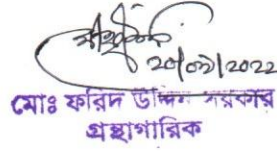 ২০/০৯/২০২২
মোঃ ফরিদ উদ্দিন সরকার
গ্রন্থাগারিক